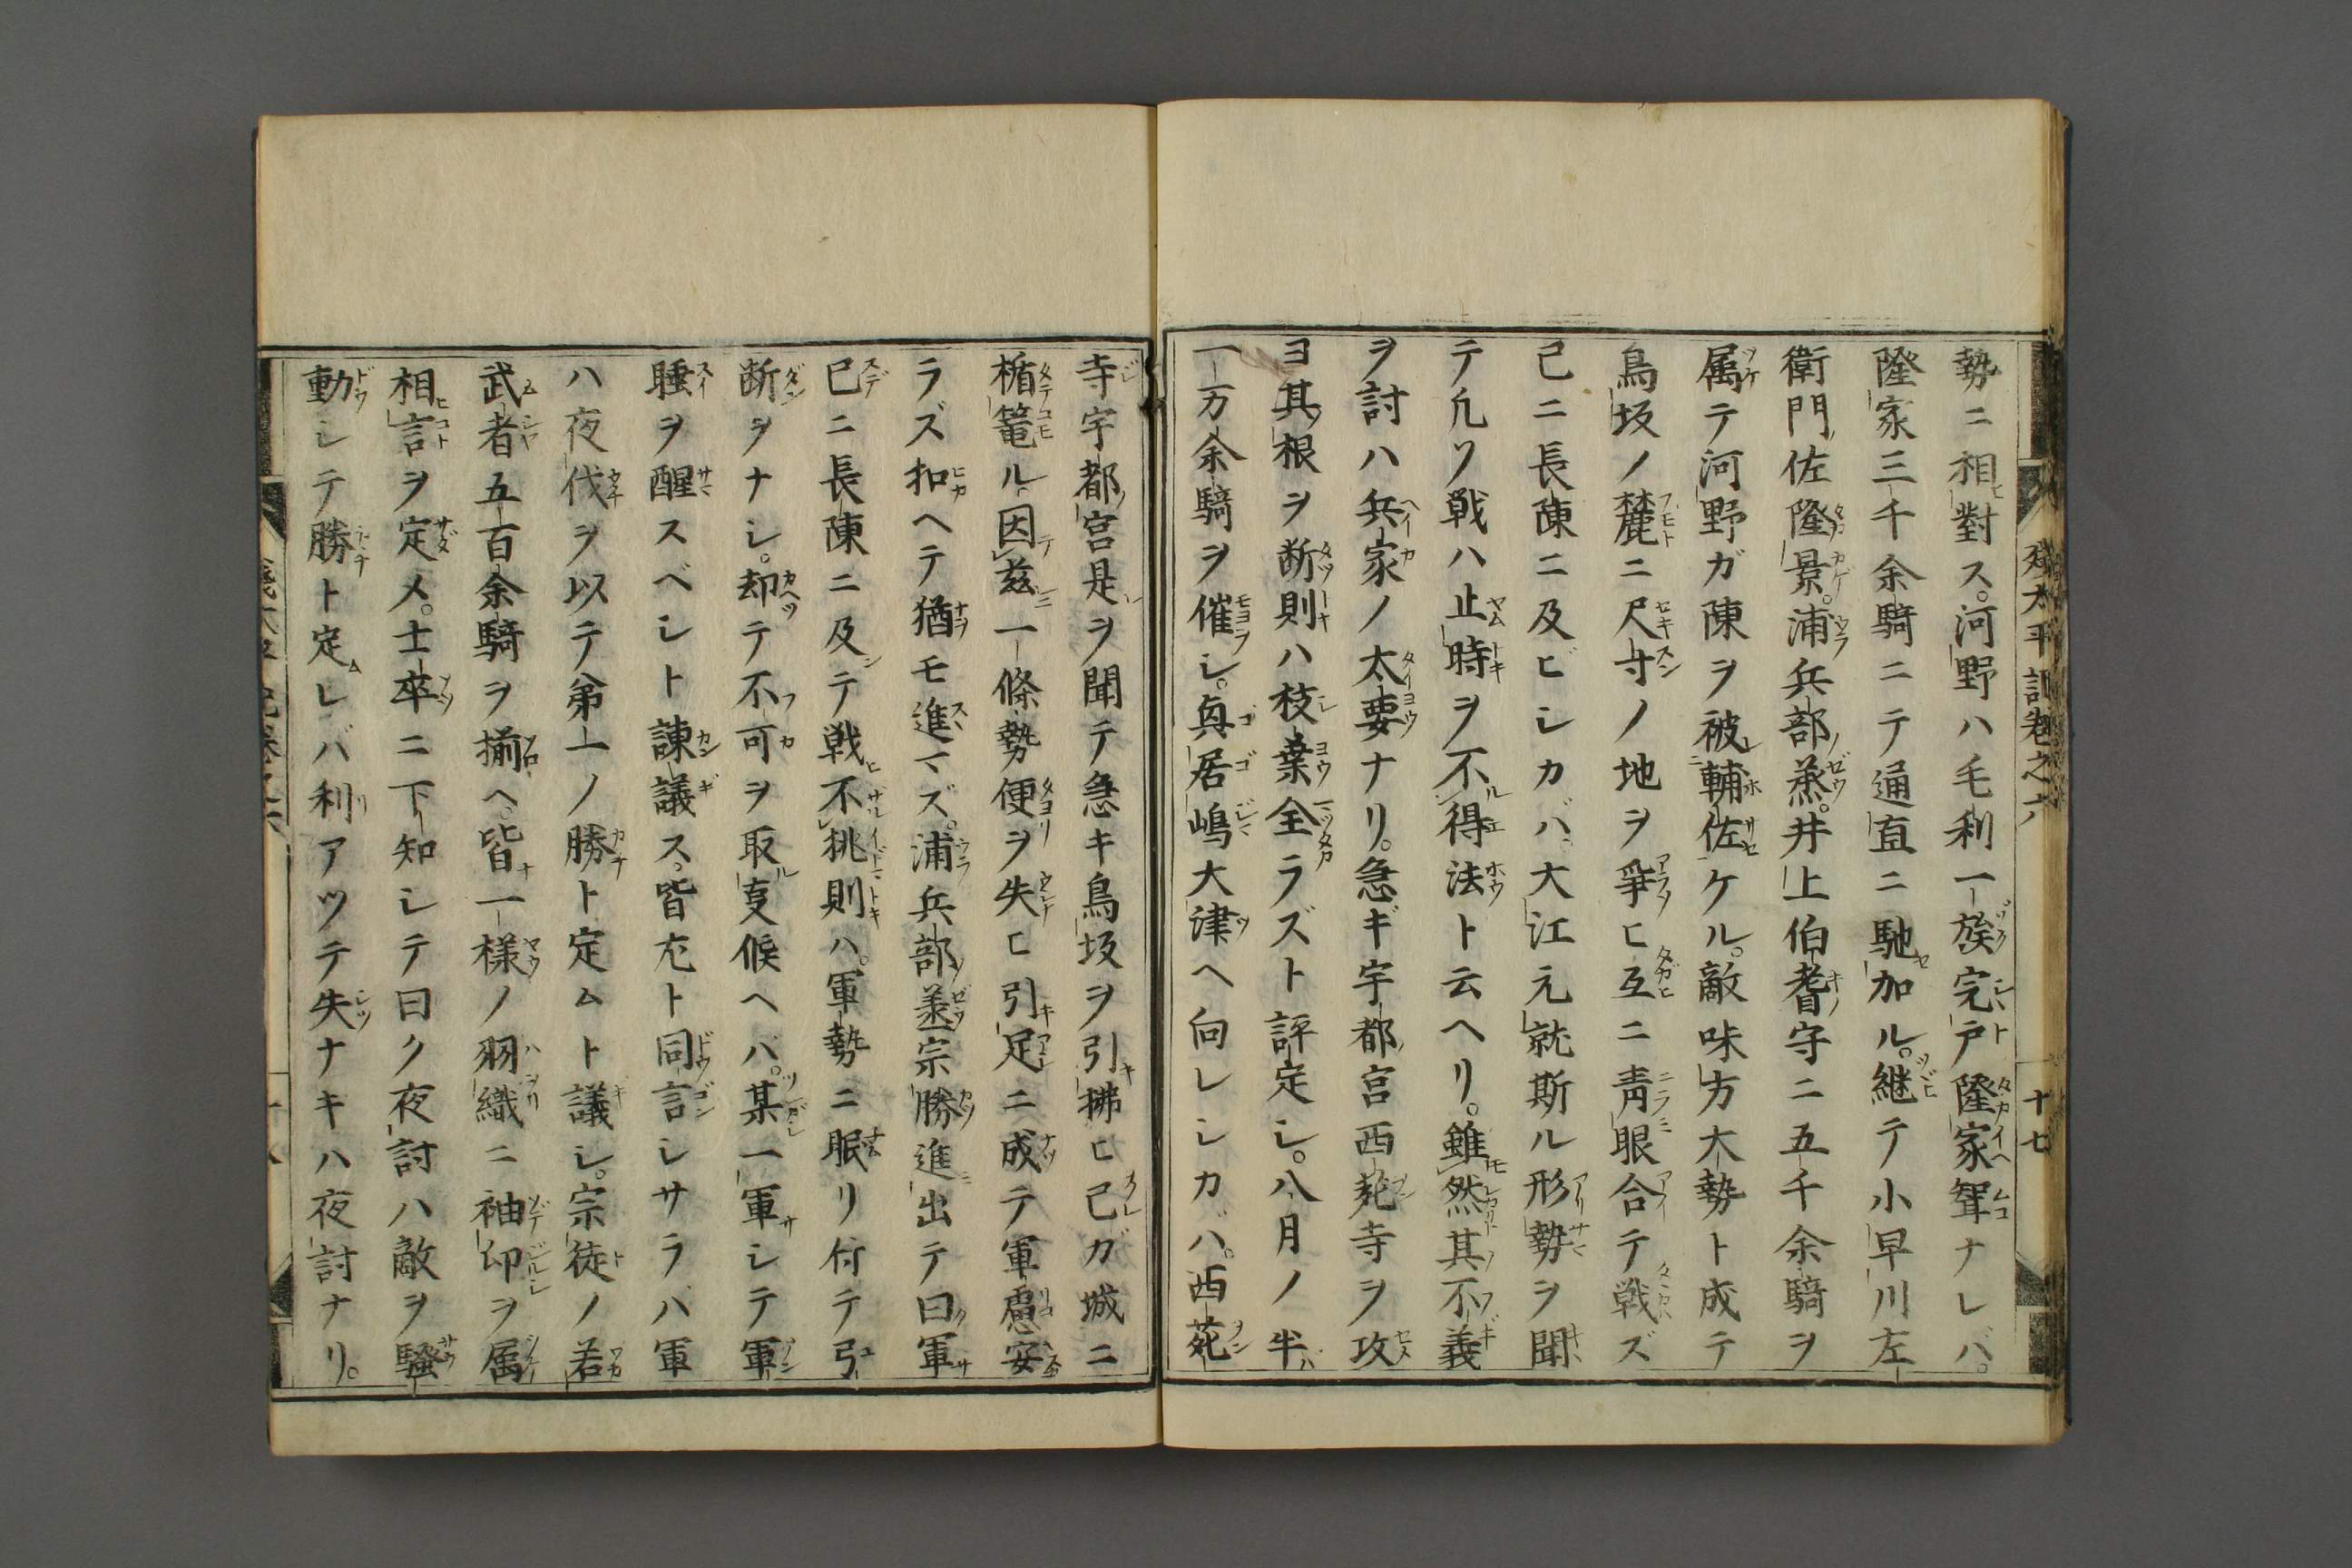 勢ニ相對ス。河野ハ毛利一族完戸隆家聟ナレバ。
隆家三千余騎ニテ通直ニ馳加ル。継テ小早川左
衛門佐隆景。浦兵部丞。井上伯耆守ニ五千余騎ヲ
属テ河野ガ陳ヲ被輔佐ケル。敵味方大勢ト成テ
鳥坂ノ麓ニ尺寸ノ地ヲ爭ヒ互ニ青眼合テ戦ズ
已ニ長陳ニ及ビシカバ大江元就斯ル形勢ヲ聞
テ凡ソ戦ハ止時ヲ不得法ト云ヘリ。雖然其不義
ヲ討ハ兵家ノ太要ナリ。急ギ宇都宮西苑寺ヲ攻
ヨ其根ヲ断則ハ枝葉全ラズト評定シ。八月ノ半
一万余騎ヲ催シ。真居嶋大津ヘ向レシカバ。西苑
寺宇都宮是ヲ聞テ急キ鳥坂ヲ引拂ヒ己ガ城ニ
楯篭ル。因茲一條勢便ヲ失ヒ引足ニ成テ軍慮安
ラズ扣ヘテ猶モ進マズ。浦兵部丞宗勝進出テ曰軍
已ニ長陳ニ及テ戦不挑則ハ。軍勢ニ眠リ付テ弓
断ヲナシ。却テ不可ヲ取叓候ヘバ。某一軍シテ軍
睡ヲ醒スベシト諌議ス。皆尤ト同言シサラバ軍
ハ夜伐ヲ以テ第一ノ勝ト定ムト議シ。宗徒ノ若
武者五百余騎ヲ揃ヘ。皆一様ノ羽織ニ袖印ヲ属
相言ヲ定メ。士卒ニ下知シテ曰ク夜討ハ敵ヲ騒
動シテ勝ト定レバ利アツテ失ナキハ夜討ナリ。
残太平記巻之六
十七